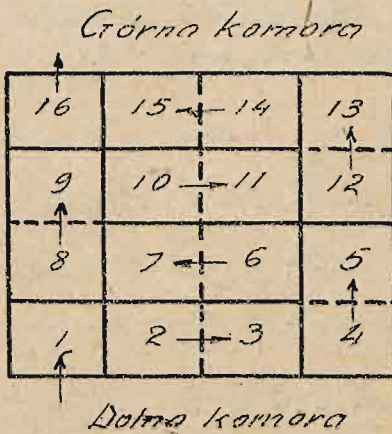 Górna komora
16 15 14 13
9 10 11 12
8 7 6 5
1 2 3 4
Dolna komora